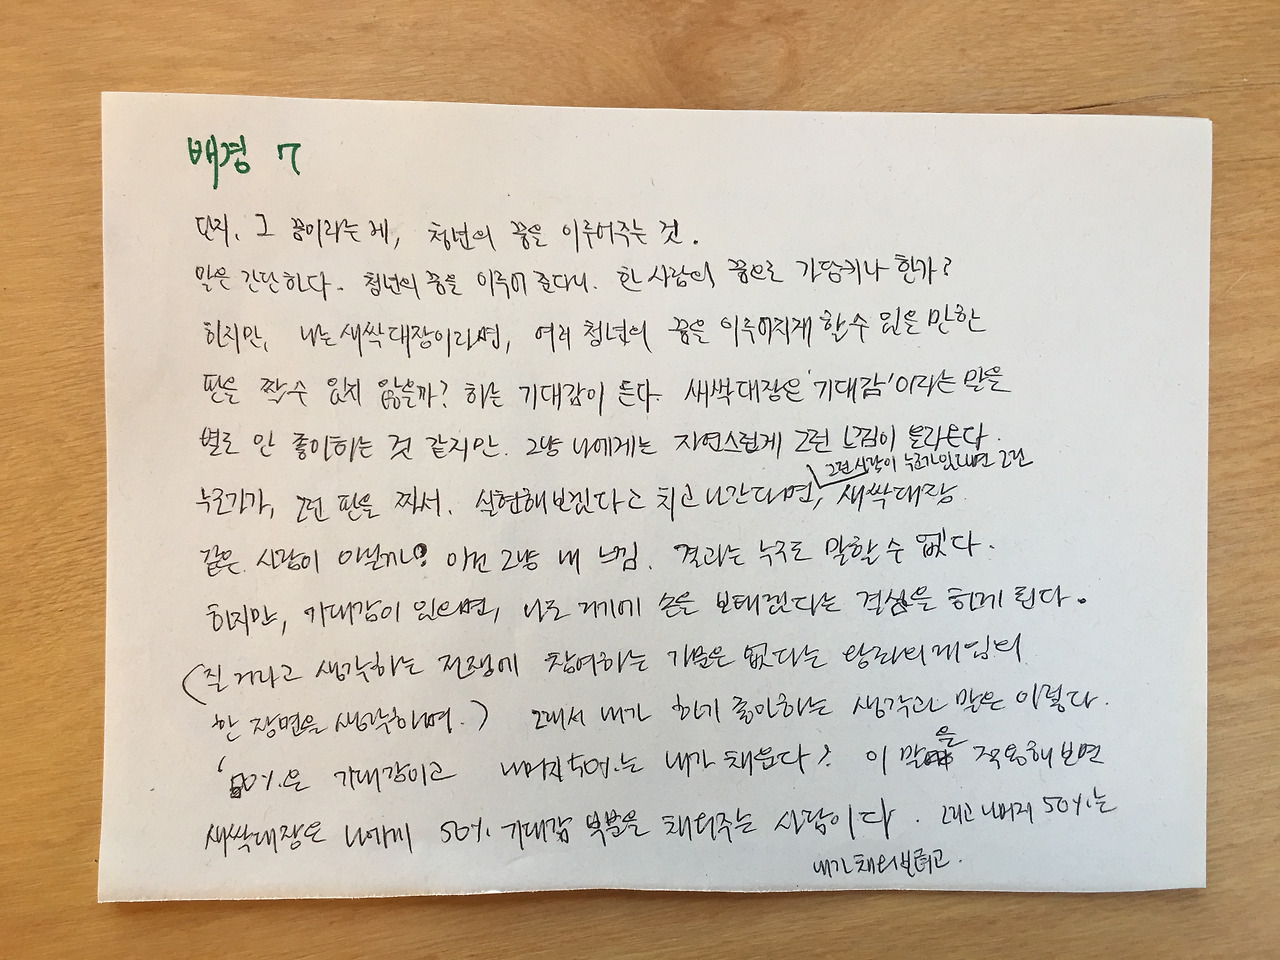 배경 7
단지, 그 꿈이라는게, 청년의 꿈을 이루어주는 것.
말은 간단하다. 청년의 꿈을 이루어 준다니. 한 사람의 꿈으로 가당키나 한가?
하지만, 나는 새싹대장이라면, 여러 청년의 꿈을 이루어지게 할 수 있을 만한
판을 짤 수 있지 않을까? 하는 기대감이 든다. 새싹대장은 '기대감'이라는 말을
별로 안 좋아하는 것 같지만. 그냥 나에게는 자연스럽게 그런 느낌이 올라온다.
그런 사람이 누군가 있다면 그건
누군가가, 그런 판을 짜서. 실현해보겠다고 치고 나간다면, 새싹대장
같은 사람이 아닐까? 이건 그냥 내 느낌. 결과는 누구도 말할 수 없다.
하지만, 기대감이 있으면, 나도 거기에 손을 보태겠다는 결심을 하게 된다.
(질 거라고 생각하는 전쟁에 참여하는 가문은 없다는 왕좌의게임의
한 장면을 생각하며.) 그래서 내가 하기 좋아하는 생각과 말은 이렇다.
'50%은 기대감이고 나머지 50%는 내가 채운다' 이 말을 적용해보면
새싹대장은 나에게 50% 기대감 부분을 채워주는 사람이다. 그리고 나머지 50%는
내가 채워보려고.